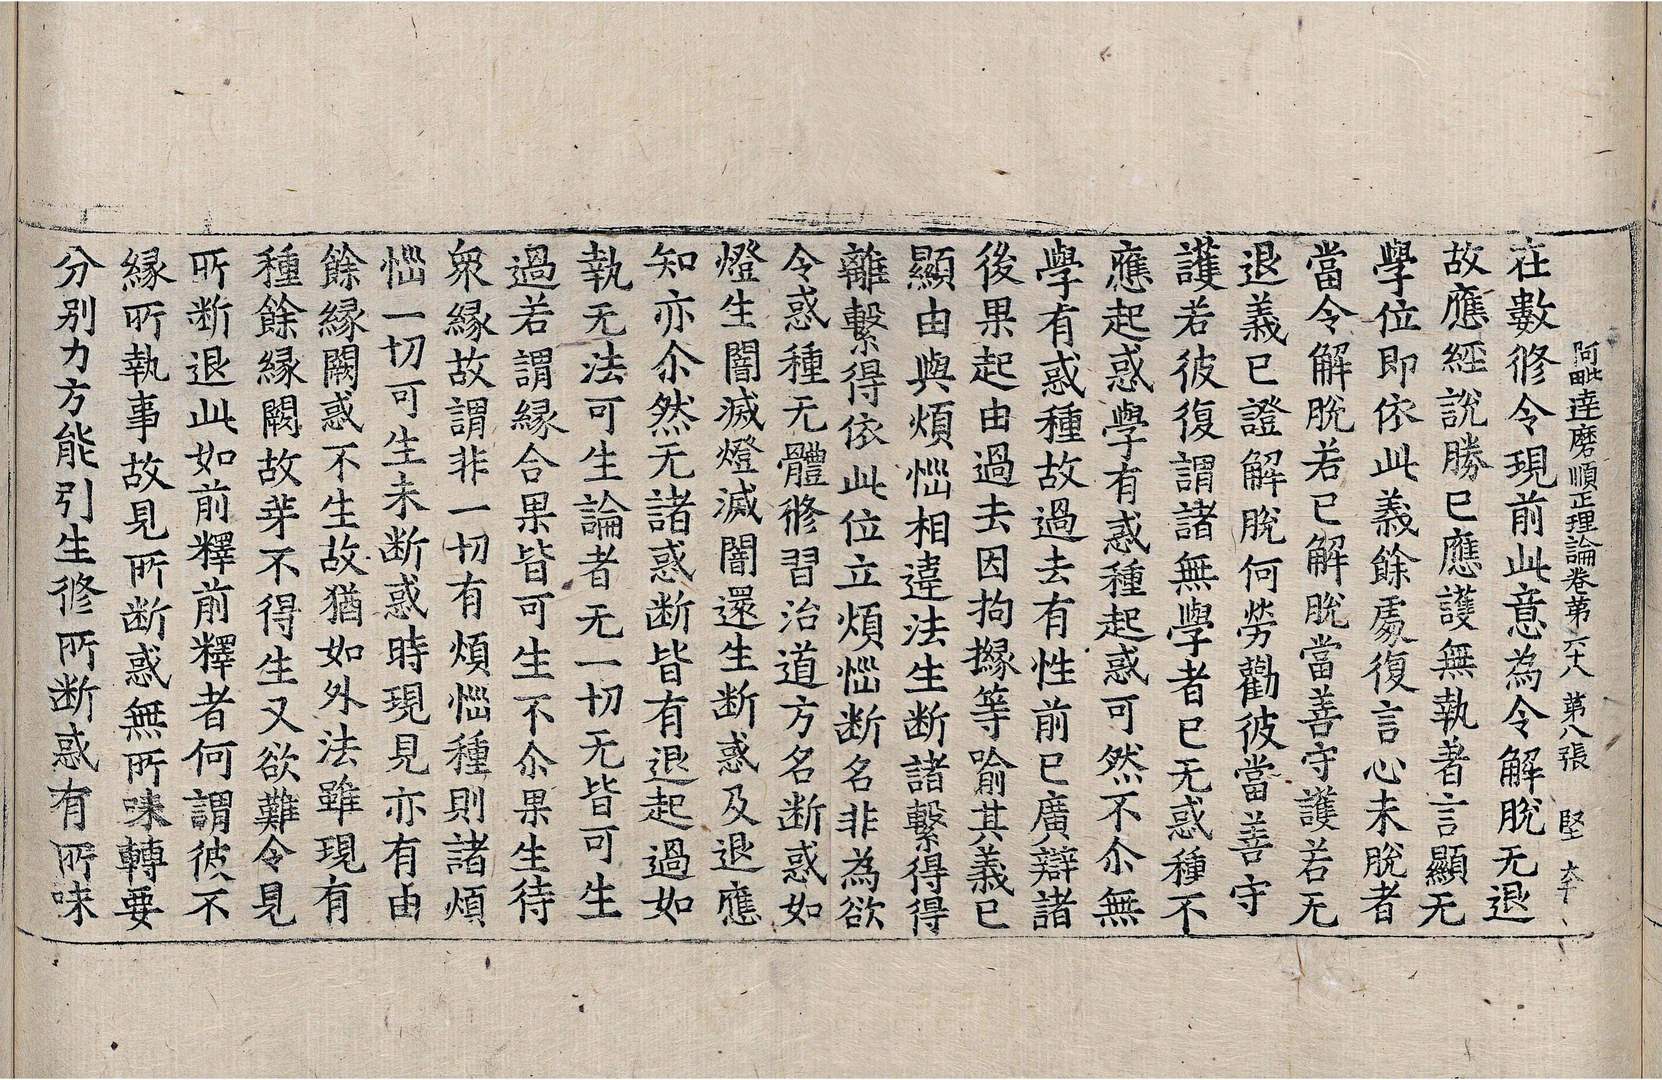 阿毗達磨順正理論卷第六十八 第八張 堅
在數修令現前此意為令解脫无退
故應經說勝已應護無執著言顯无
學位即依此義餘處復言心未脫者
當令解脫若已解脫當善守護若无
退義已證解脫何勞勸彼當善守
護若彼復謂諸無學者已无惑種不
應起惑學有惑種起惑可然不尒無
學有惑種故過去有性前已廣辯諸
後果起由過去因拘櫞等喻其義已
顯由與煩惱相違法生斷諸繫得得
離繫得依此位立煩惱斷名非為欲
令惑種无體修習治道方名斷惑如
燈生闇滅燈滅闇還生斷惑及退應
知亦尒然无諸惑斷皆有退起過如
執无法可生論者无一切无皆可生
過若謂緣合果皆可生不尒果生待
眾緣故謂非一切有煩惱種則諸煩
惱一切可生未断惑時現見亦有由
餘緣闕惑不生故猶如外法雖現有
種餘緣闕故芽不得生又欲難令見
所断退此如前釋前釋者何謂彼不
緣所執事故見所断惑無所味轉要
分別力方能引生修所断惑有所味